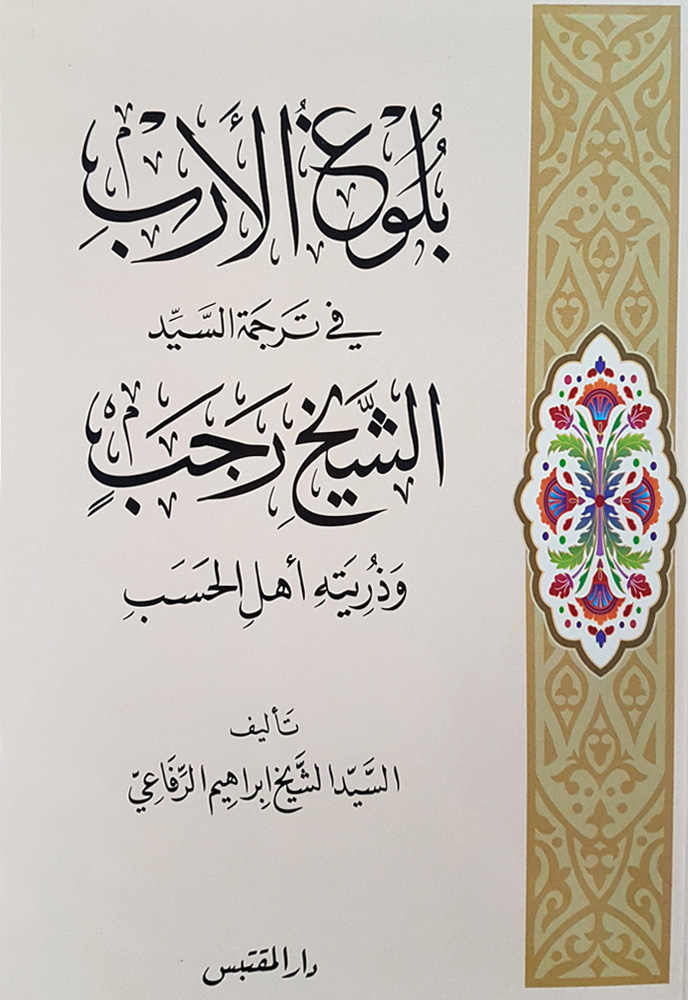 بُلُوغُ الأَرَبِ
في تَرجَمَة السَّيِّد
الشَّيخِ رَجَبَ
وَذُرِيَتِهِ أهلِ الحَسَبِ
تَأليف
السَّيِّد الشَّيخ إبراهيم الرِّفَاعِيّ
دار المقتبس